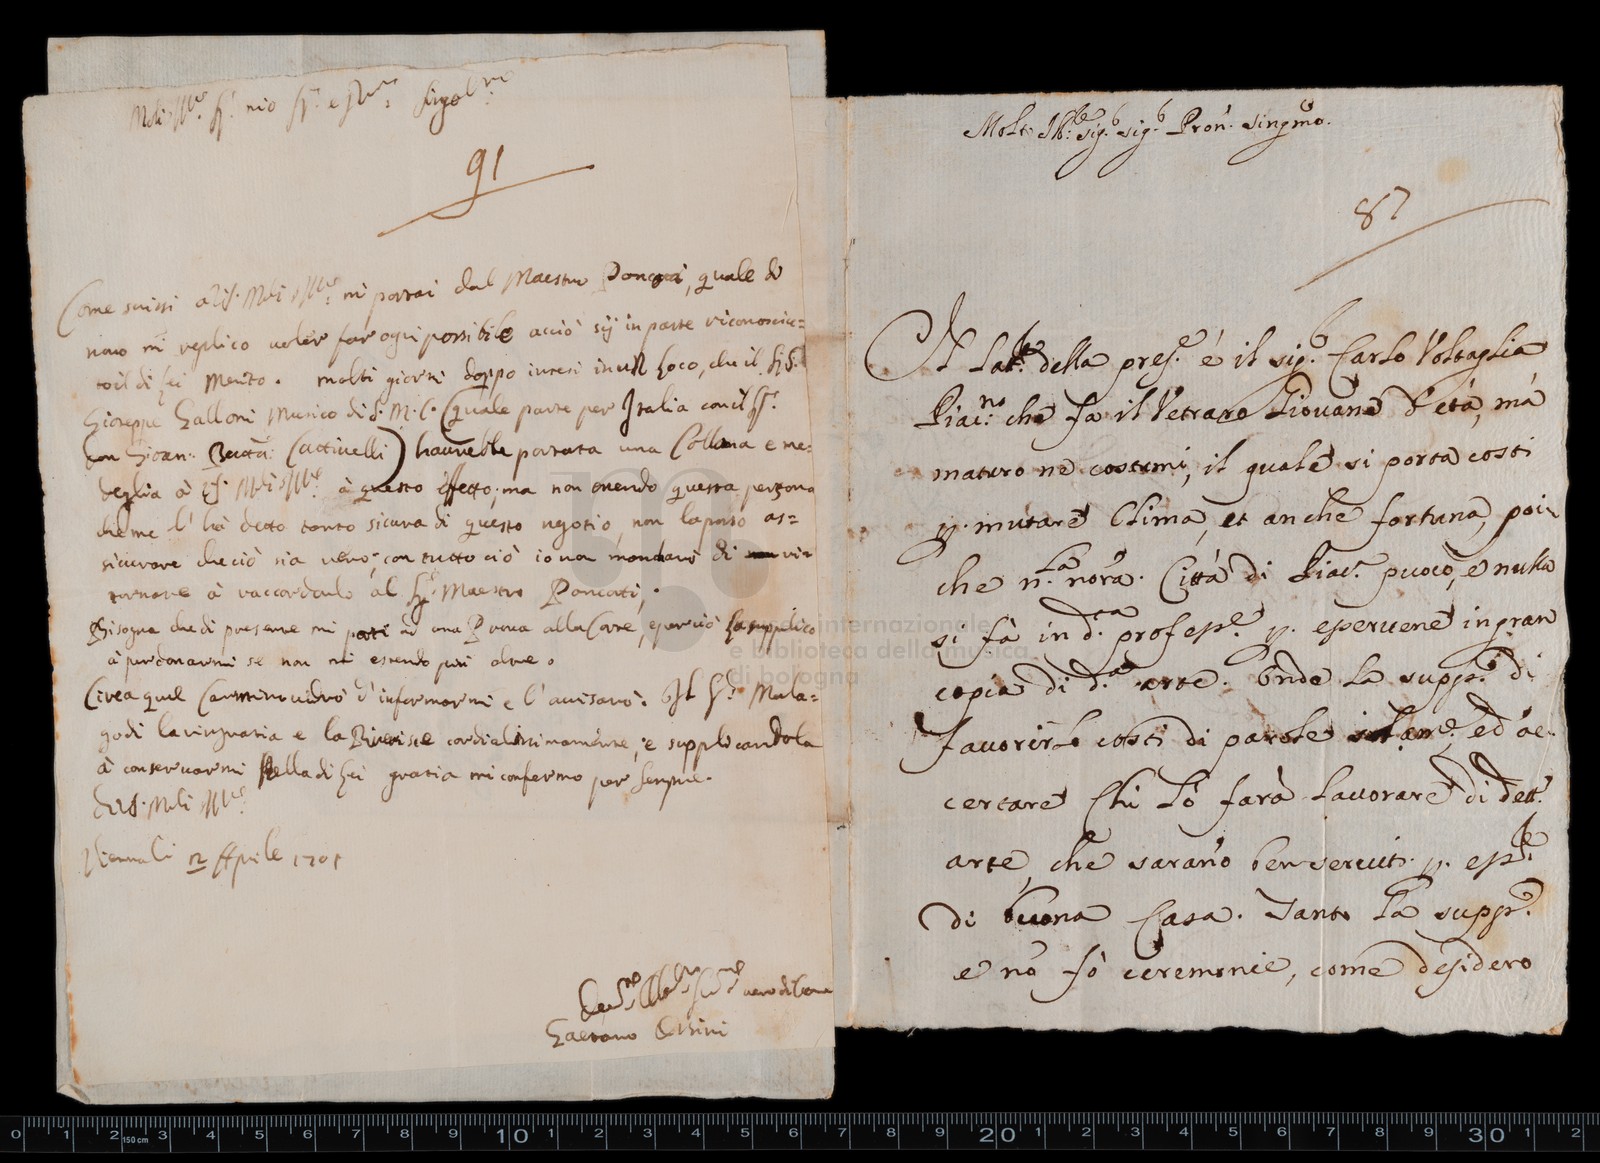 Molt' Ill.re Sig.r mio Sig.r e Pron.e Singol.mo
91
Come scrissi a V.S. Molt' Ill.re mi portai dal Maestro Poncati, quale di
novo mi replicò voler far ogni possibile acciò sij in parte riconosciu=
to il di Lei merito. molti giorni doppo intesi in un loco, che il Sig.r
Gioseppe Galloni Musico di S. M. C. (quale parte per Italia con il Sig.r
Don Gioan: Batta: Cattivelli) haurebbe portata una Collana e me=
deglia à V.S. Molt' Ill.re à questo effetto; ma non essendo questa persona
che me l' hà detto tanto sicura di questo negotio, non la posso as=
sicurare che ciò sia vero; con tutto ciò io non mancarò di ri=
tornare à raccordarlo al Sig.r Maestro Poncati,
Bisogna che di presente mi porti ad una Prova alla Corte, e perciò la supplico
à perdonarmi se non mi estendo più oltre.
Circa quel Cammino vedrò d' informarmi e l' avisarò. Il Sig.r Mala=
godi la ringratia e la Riverisce cordialissimamente, e supplicandola
à conservarmi nella di Lei gratia mi confermo per sempre.
Di V.S. Molt' Ill.re
Vienna li 12 Aprile 1701
vero di Core
Gaetano Orsini
Molt' Ill.re Sig.r Sig.r Pron. Singmo.
87
Il Lat.re della pres.e è il Sig.r Carlo Voltaglia
Piac.no che fà il Vetraro Giovane d' età, mà
maturo ne costumi, il quale si porta costì
p. mutare Clima, et anche fortuna, poi-
che n.a nõra. Città di Piac.a puoco, e nulla
si fà in d.a profess.e p. esservene in gran
copia di d.a arte. Onde la supp.o di
favorirlo costì di parole , ed ac-
certare Chi lo farà lavorare di dett.
arte, che sarano ben serviti p. ess.re
di buona Casa. Tanto la supp.o
e nõ fò ceremonie, come desidero
internazionale
e biblioteca della musica
di bologna
0 1 2 150 cm 3 4 5 6 7 8 9 10 1 2 3 4 5 6 7 8 9 20 1 2 3 4 5 6 7 8 9 30 1 2